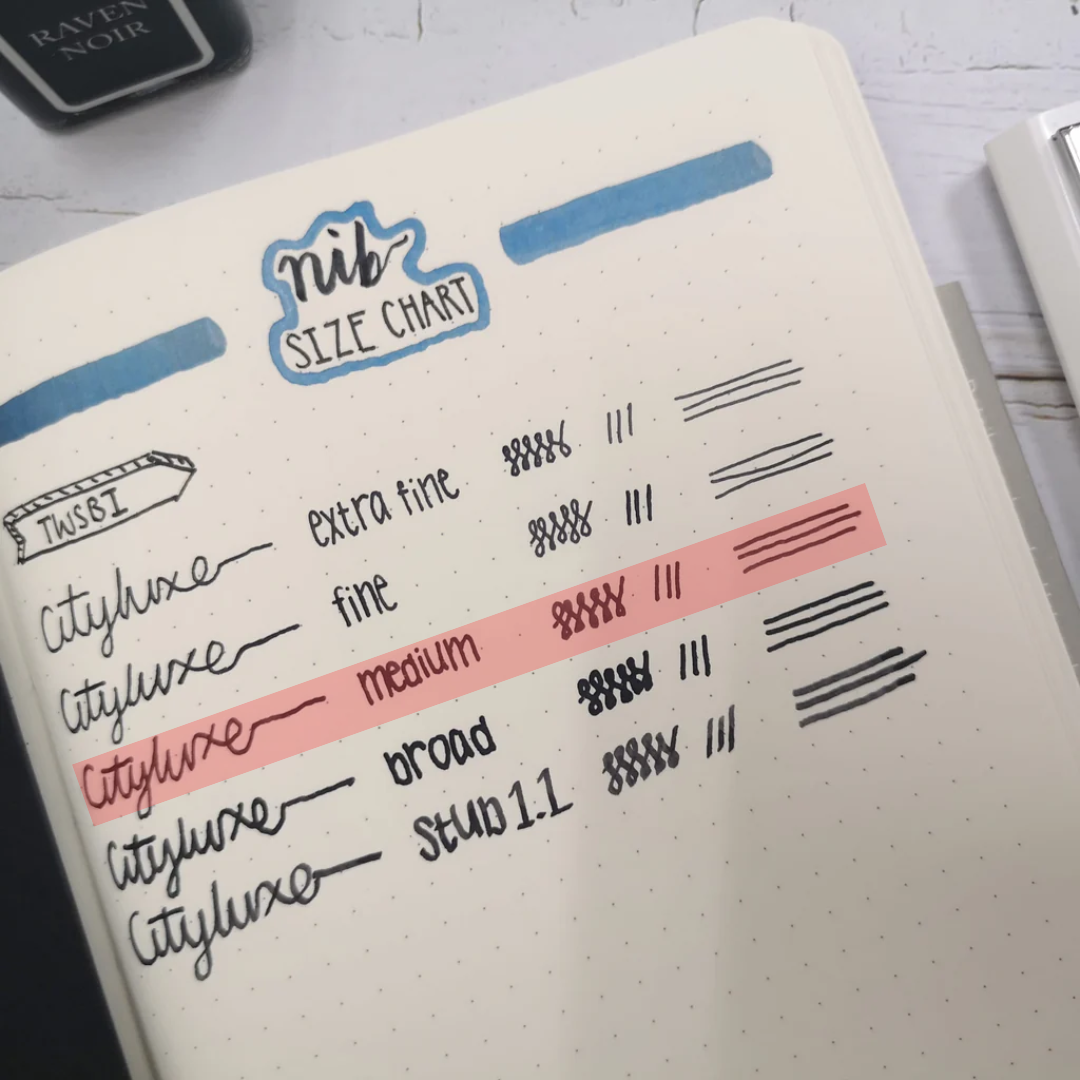 RAVEN
NOIR
nib
SIZE CHART
TWSBI
Cityluxe extra fine
Cityluxe fine
Cityluxe medium
Cityluxe broad
Cityluxe Stub 1.1